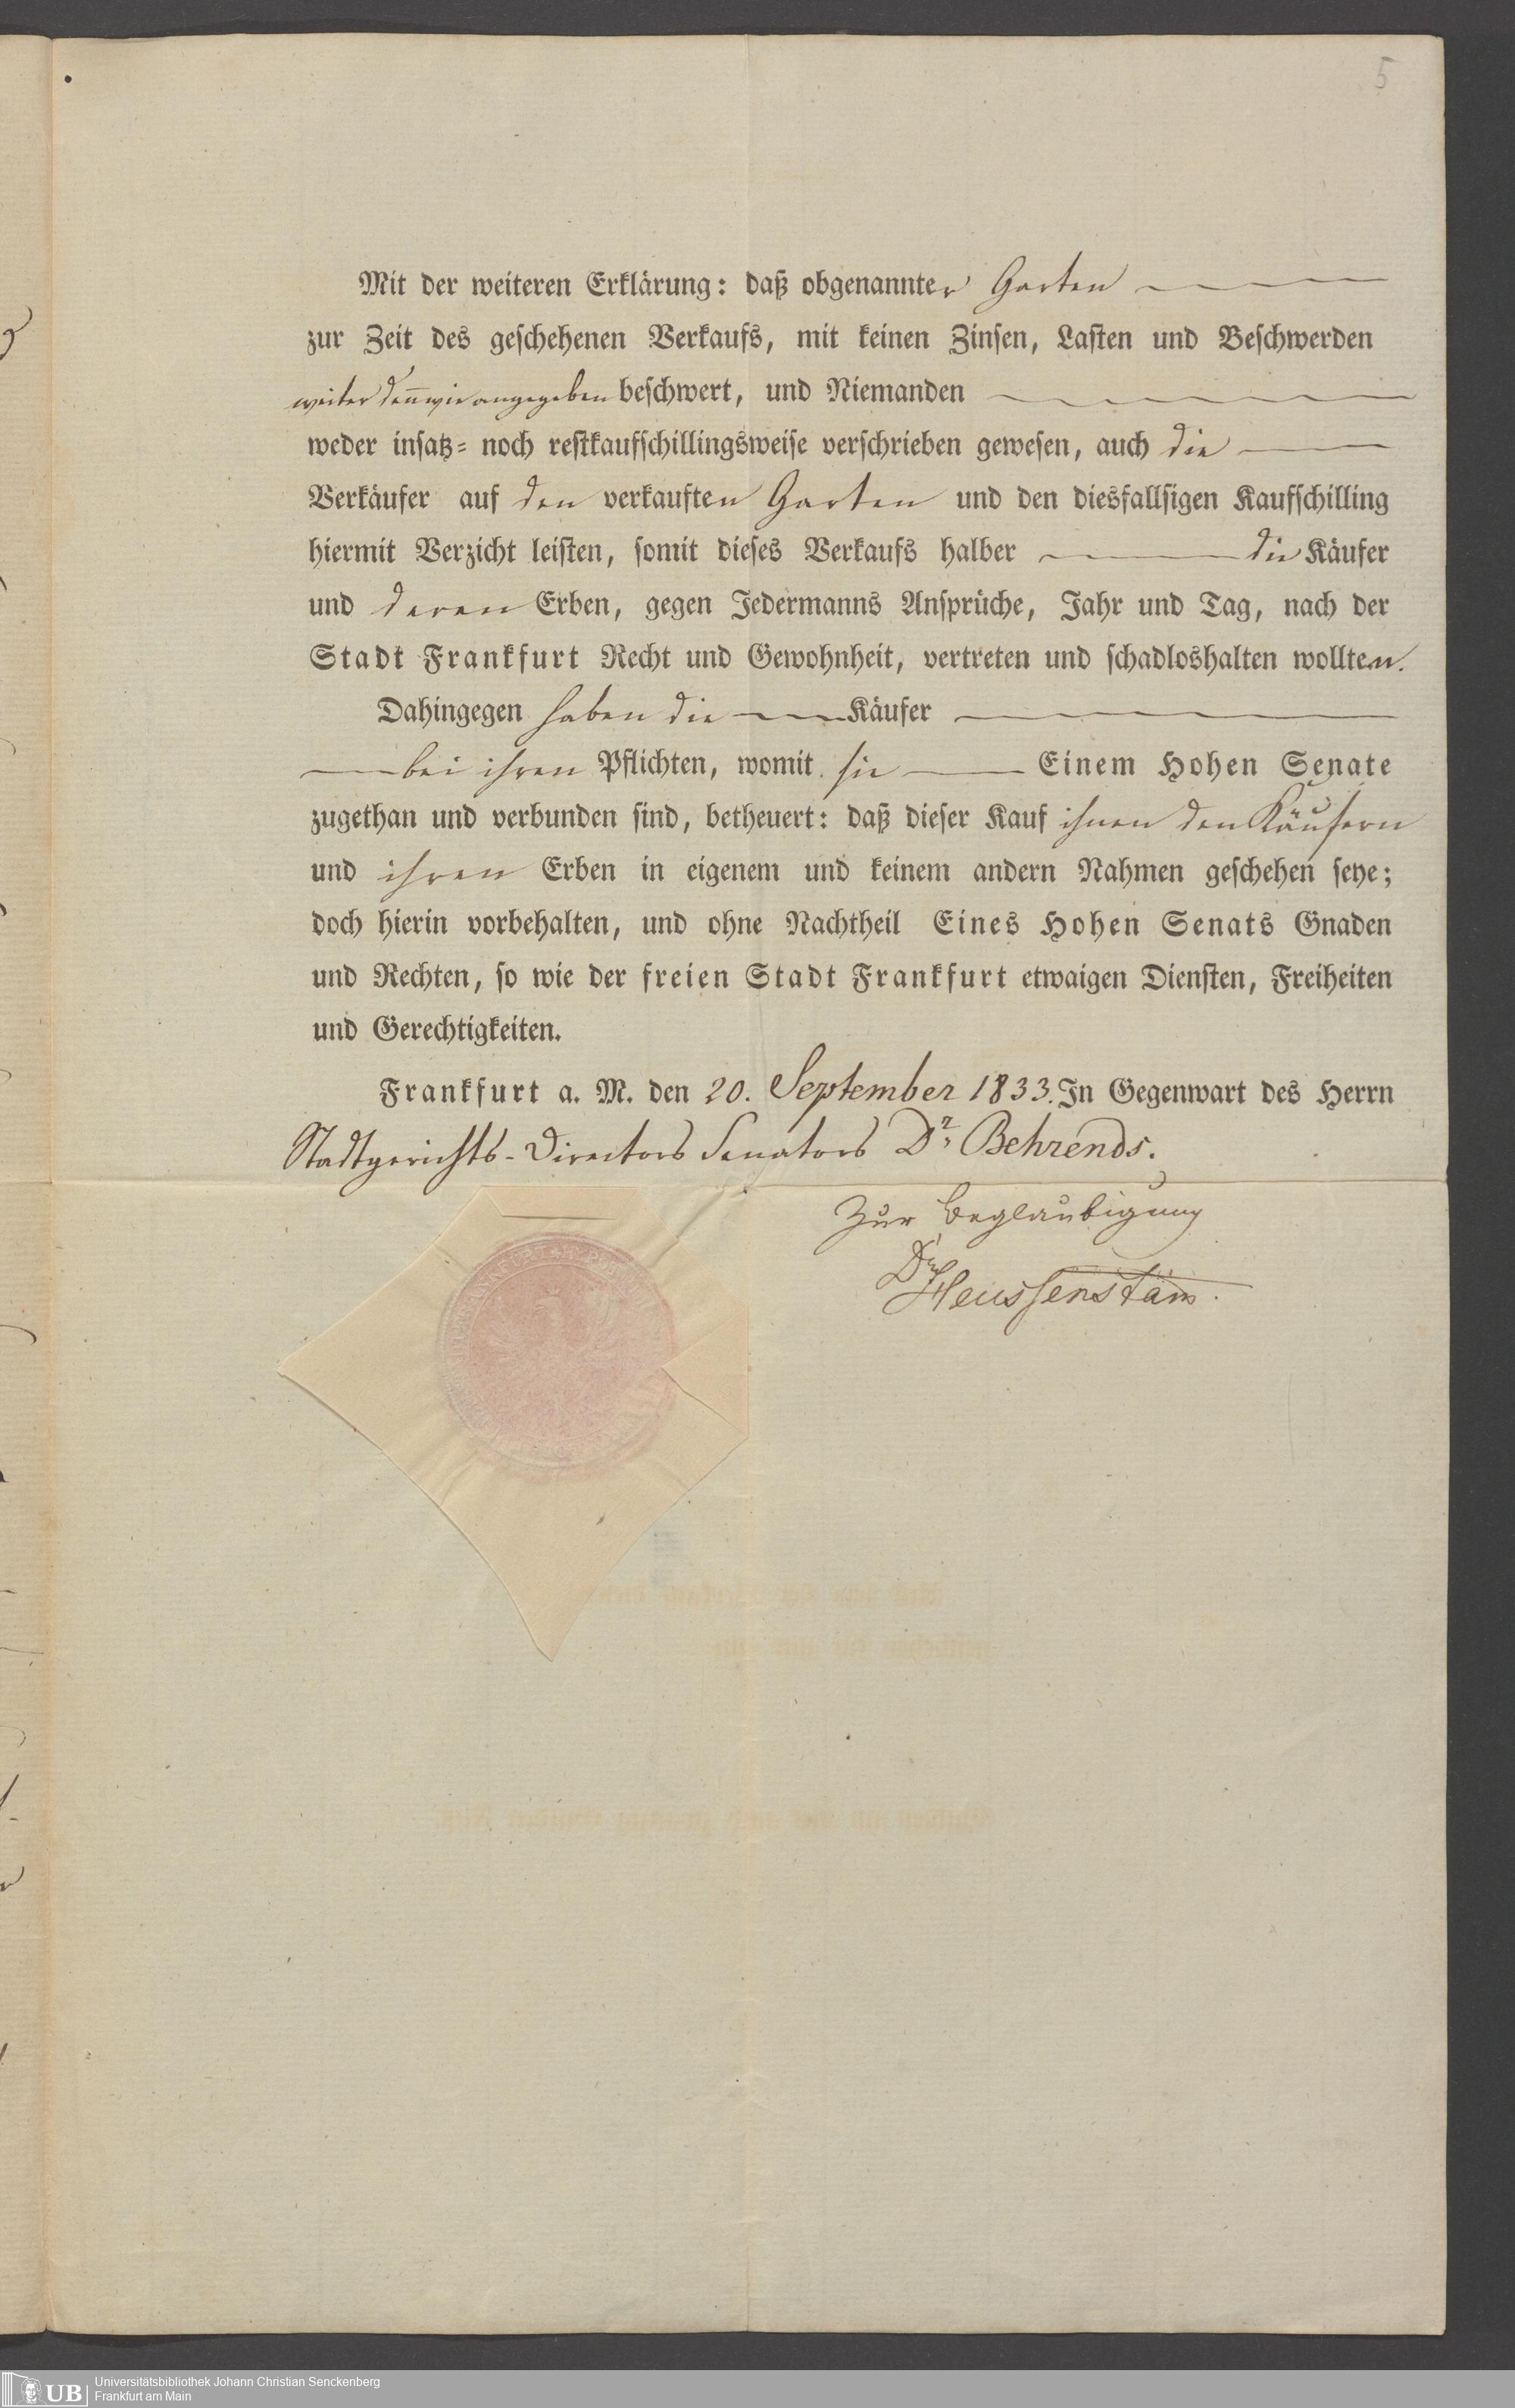 5
Mit der weiteren Erklärung: daß obgenannter Garten
zur Zeit des geschehenen Verkaufs, mit keinen Zinsen, Lasten und Beschwerden
weiter den̅ wie angegeben beschwert, und Niemanden
weder insatz= noch restkaufschillingsweise verschrieben gewesen, auch die
Verkäufer auf den verkauften Garten und den diesfallsigen Kaufschilling
hiermit Verzicht leisten, somit dieses Verkaufs halber die Käufer
und deren Erben, gegen Jedermanns Ansprüche, Jahr und Tag, nach der
Stadt Frankfurt Recht und Gewohnheit, vertreten und schadloshalten wollten.
Dahingegen haben die Käufer
bei ihren Pflichten, womit sie Einem Hohen Senate
zugethan und verbunden sind, betheuert: daß dieser Kauf ihnen den Käufern
und ihren Erben in eigenem und keinem andern Nahmen geschehen seye;
doch hierin vorbehalten, und ohne Nachtheil Eines Hohen Senats Gnaden
und Rechten, so wie der freien Stadt Frankfurt etwaigen Diensten, Freiheiten
und Gerechtigkeiten.
Frankfurt a. M. den 20. September 1833. In Gegenwart des Herrn
Stadtgerichts-Directors Senators Dr. Behrends.
Zur Beglaubigung
Dr Heussenstam̅.
UB Universitätsbibliothek Johann Christian Senckenberg
Frankfurt am Main